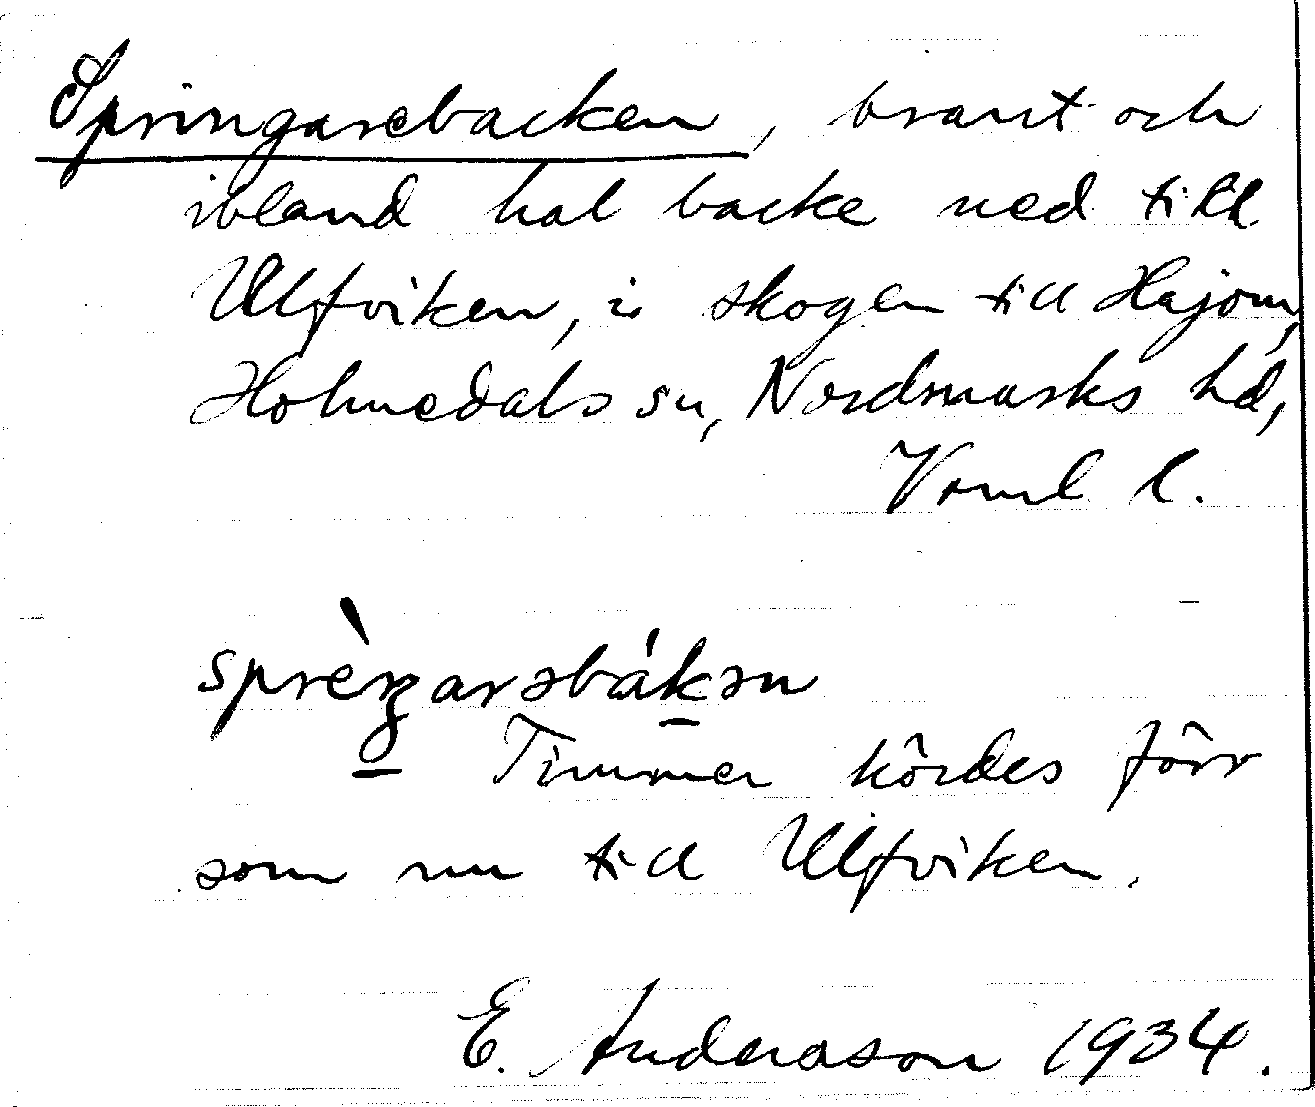 Springarebacken, brant och
ibland hal backe ned till
Ulfviken, i skogen till Hajom,
Holmedals sn, Nordmarks hd,
Vrml l.
sprèŋarəbákən
Timmer kördes förr
som nu till Ulfviken.
E. Andersson 1934.